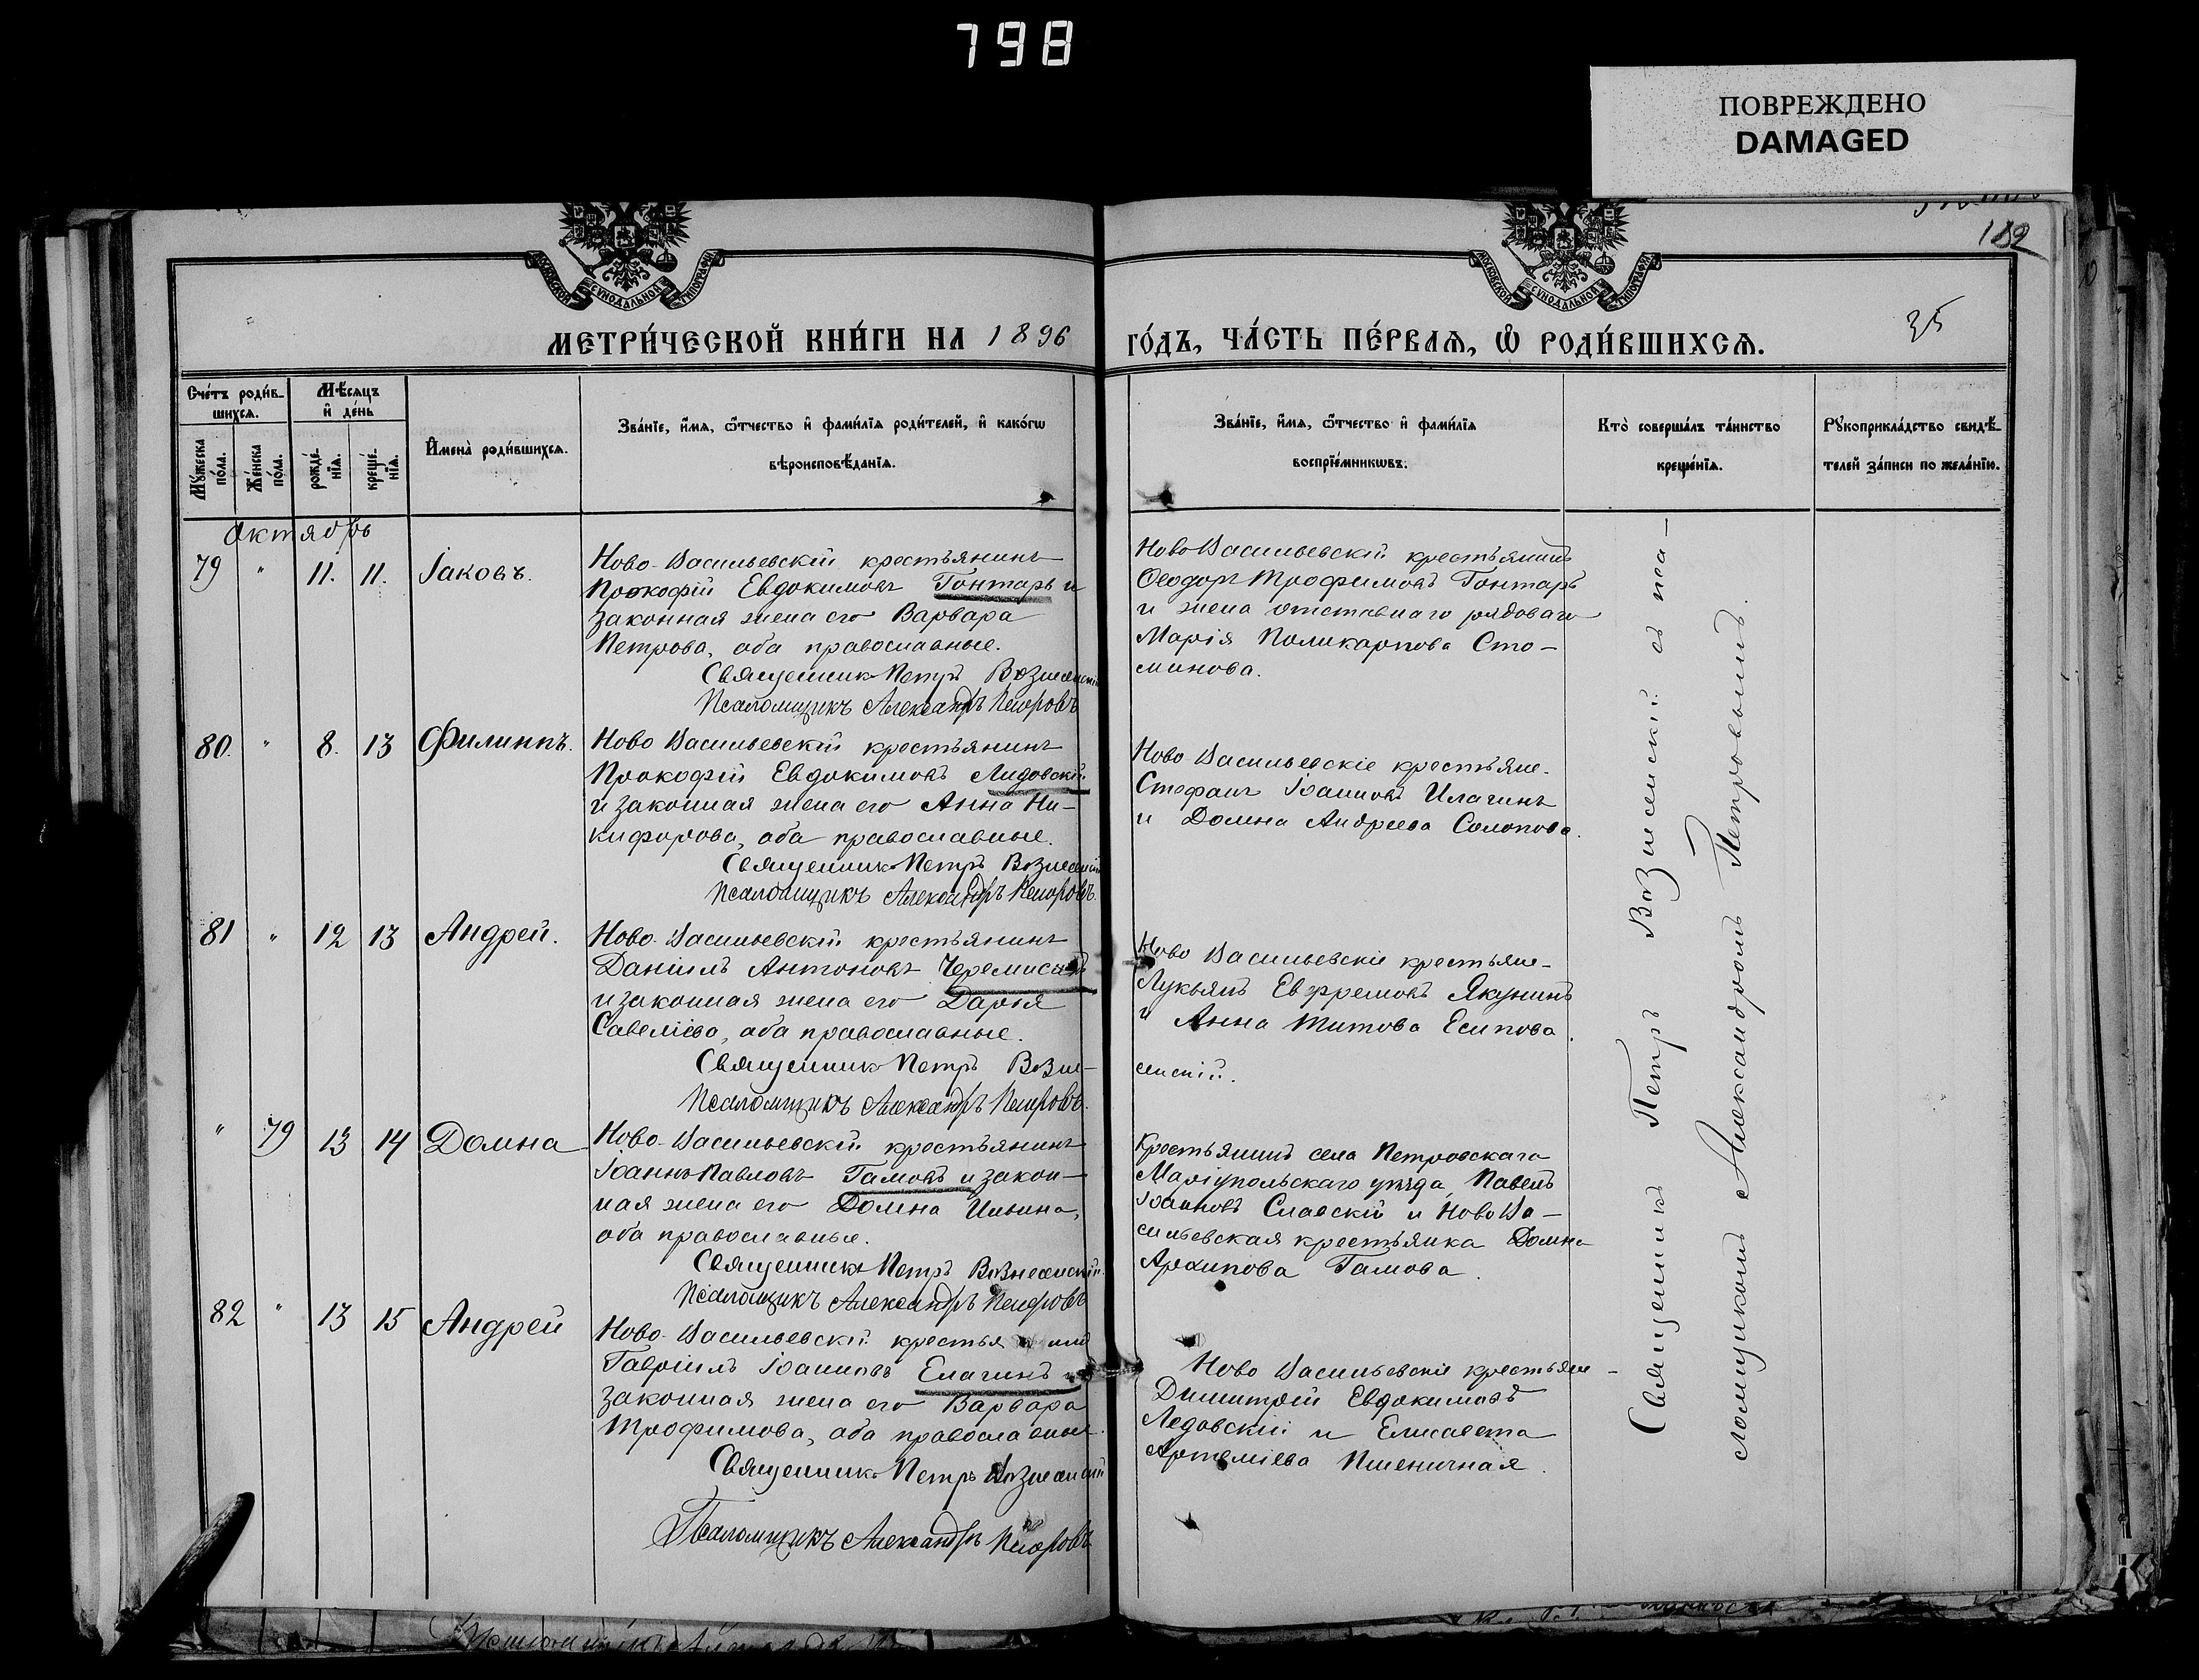 798
ПОВРЕЖДЕНО
DAMAGED
189
35
МОСКОВСКОЙ СУНОДАЛЬНОЙ ТИПОГРАФІИ
МОСКОВСКОЙ СУНОДАЛЬНОЙ ТИПОГРАФІИ
МЕТРИ́ЧЕСКОЙ КНИ́ГИ НА 1896 ГО́ДЪ, ЧА́СТЬ ПЕ́РВАѦ, Ѽ РОДИ́ВШИХСѦ.
Сче́тъ роди́в-
шихсѧ.
Мꙋ́жеска по́ла.
Же́нска по́ла.
Мѣ́сѧцъ
и҆ де́нь
рожде́-
нїѧ.
креще́-
нїѧ.
И҆мена̀ роди́вшихсѧ.
Зва́нїе, и҆́мѧ, ѻ҆́тчество и҆ фами́лїѧ роди́телей, и҆ како́гѡ
вѣроисповѣ́данїѧ.
Зва́нїе, и҆́мѧ, ѻ҆́тчество и҆ фами́лїѧ
воспрїе́мникѡвъ.
Кто̀ соверша́лъ та́инство
креще́нїѧ.
Рꙋкоприкла́дство свидѣ́-
телей за́писи по жела́нїю.
Октябрь
79 " 11. 11. Іаковъ.
Ново-Васильевскій крестьянинъ
Прокофій Евдокимовъ Гонтарь и
законная жена его Варвара
Петрова, оба православные.
Священникъ Петръ Вознесенскій
Псаломщикъ Александръ Петровъ
Ново Васильевскій крестьянинъ
Ѳеодоръ Трофимовъ Гонтарь
и жена отставнаго рядоваго
Марія Поликарпова Сто-
минова.
80. " 8. 13 Филиппъ.
Ново Васильевскій крестьянинъ
Прокофій Евдокимовъ Лидовскій
и законная жена его Анна Ни-
кифорова, оба православные.
Священникъ Петръ Вознесенскій
Псаломщикъ Александръ Петровъ.
Ново Васильевскіе крестьяне-
Стефанъ Іоанновъ Илагинъ
и Домна Андреева Солопова.
81 " 12 13 Андрей.
Ново-Васильевскій крестьянинъ
Даніилъ Антоновъ
и законная жена его Дарія
Савеліева, оба православные.
Священникъ Петръ Возне-
сенскій.
Псаломщикъ Александръ Петровъ.
Ново Васильевскіе крестьяне-
Лукьянъ Ефремовъ Якунинъ
и Анна Титова Есипова.
" 79 13 14 Домна
Ново-Васильевскій крестьянинъ
Іоаннъ Павловъ Гамовъ и закон-
ная жена его Домна Ильина,
оба православные.
Священникъ Петръ Вознесенскій.
Псаломщикъ Александръ Петровъ
Крестьянинъ села Петровскаго
Маріупольскаго уѣзда, Павелъ
Іоанновъ Славскій и Ново Ва-
сильевская крестьянка Домна
Архипова Гамова.
82 " 13 15 Андрей
Ново-Васильевскій крестьянинъ
Гавріилъ Іоанновъ Елагинъ и
законная жена его Варвара
Трофимова, оба православные.
Священникъ Петръ Вознесенскій
Псаломщикъ Александръ Петровъ
Ново Васильевскіе крестьяне-
Димитрій Евдокимовъ
Ледовскій и Елисавета
Артеміева Пшеничная.
Священникъ Петръ Вознесенскій съ пса-
ломщикомъ Александромъ Петровымъ.